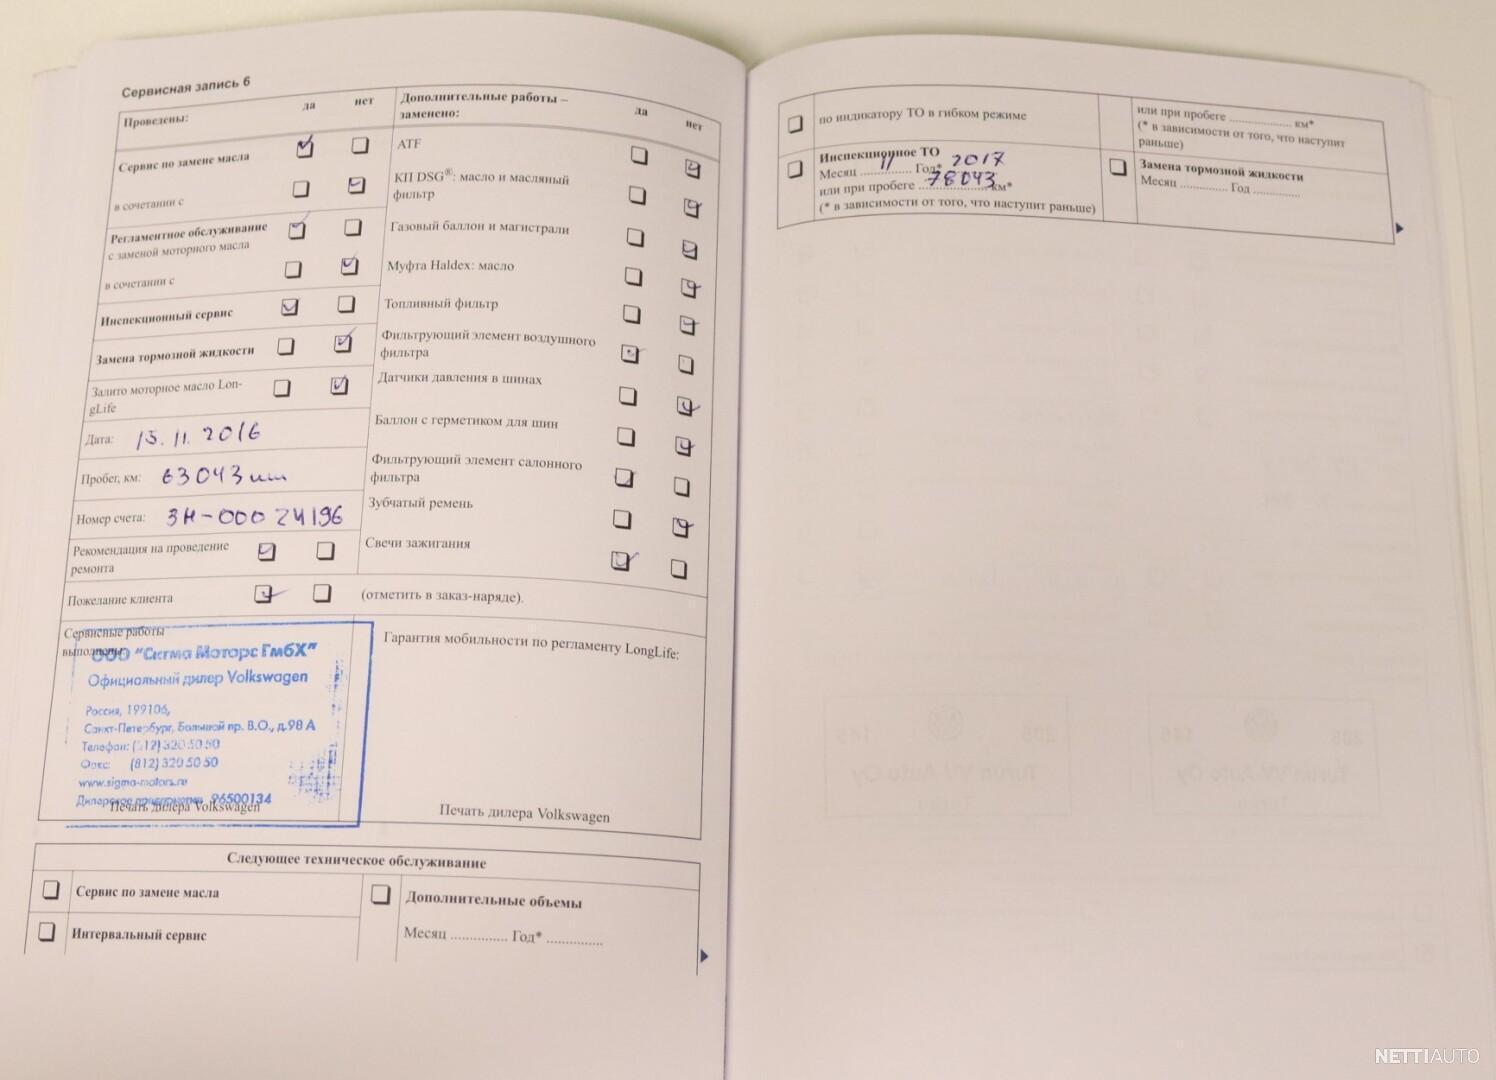 Сервисная запись 6
Проведены:
да
нет
Сервис по замене масла
в сочетании с
Регламентное обслуживание
с заменой моторного масла
в сочетании с
Инспекционный сервис
Замена тормозной жидкости
Залито моторное масло Lon-
gLife
Дата: 15.11.2016
Пробег, км: 63043
Номер счета: ЗН-00024196
Рекомендация на проведение
ремонта
Пожелание клиента
(отметить в заказ-наряде).
Дополнительные работы –
заменено:
да
нет
ATF
КП DSG®: масло и масляный
фильтр
Газовый баллон и магистрали
Муфта Haldex: масло
Топливный фильтр
Фильтрующий элемент воздушного
фильтра
Датчики давления в шинах
Баллон с герметиком для шин
Фильтрующий элемент салонного
фильтра
Зубчатый ремень
Свечи зажигания
Сервисные работы
выполнены:
ООО "Сигма Моторс ГмбХ"
Официальный дилер Volkswagen
Россия, 199106,
Санкт-Петербург, Большой пр. В.О., д.98 А
Телефон: (812) 320 50 50
Факс: (812) 320 50 50
www.sigma-motors.ru
Дилерское предприятие 96500134
Печать дилера Volkswagen
Гарантия мобильности по регламенту LongLife:
Печать дилера Volkswagen
Следующее техническое обслуживание
Сервис по замене масла
Интервальный сервис
Дополнительные объемы
Месяц ............... Год* ...............
по индикатору ТО в гибком режиме
Инспекционное ТО
Месяц 11 Год* 2017
или при пробеге 78043 км*
(* в зависимости от того, что наступит раньше)
или при пробеге .................. км*
(* в зависимости от того, что наступит
раньше)
Замена тормозной жидкости
Месяц .............. Год ..............
NETTIAUTO